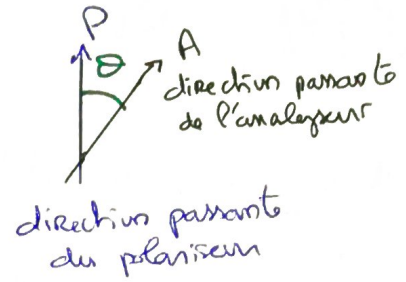 P
θ
A
direction passante
de l'analyseur
direction passante
du polariseur